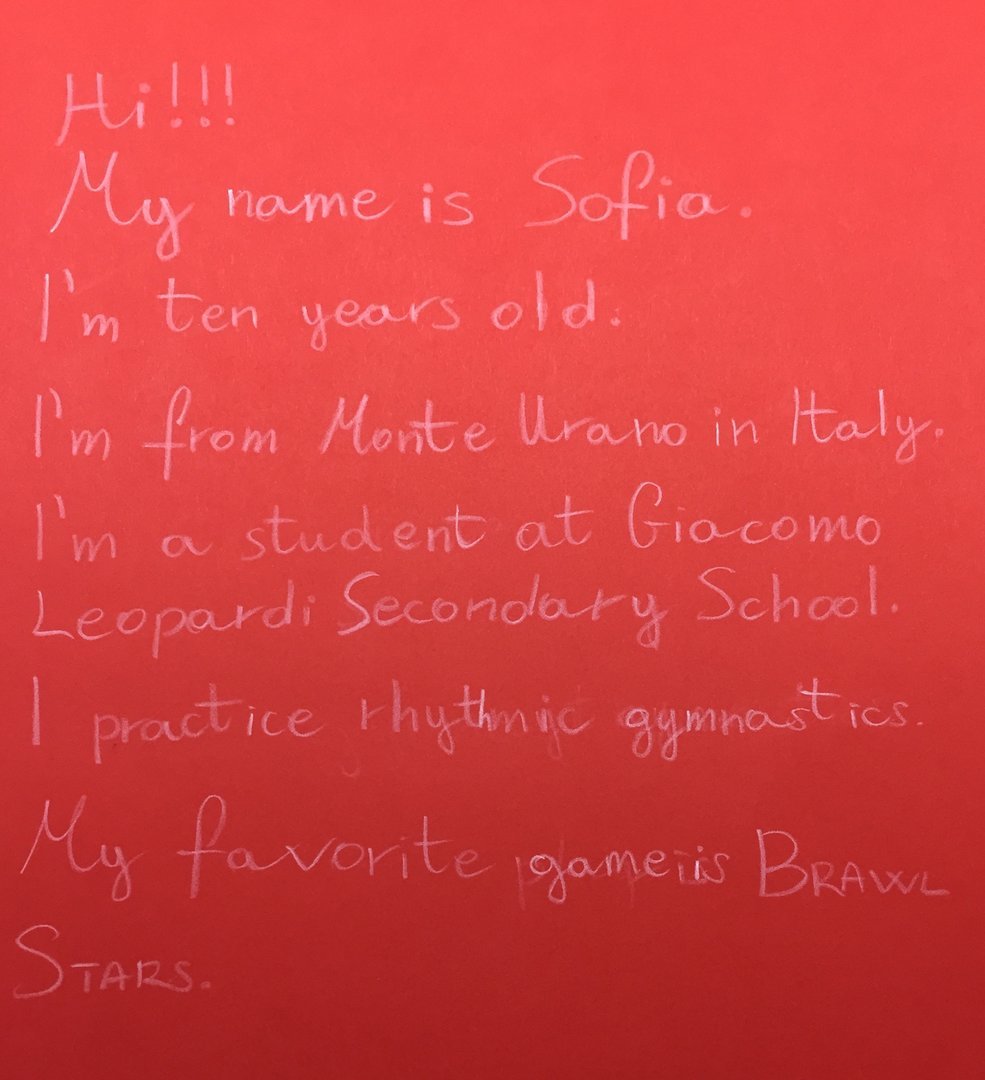 Hi!!!
My name is Sofia.
I'm ten years old.
I'm from Monte Urano in Italy.
I'm a student at Giacomo
Leopardi Secondary School.
I practice rhythmic gymnastics.
My favorite game is BRAWL
STARS.